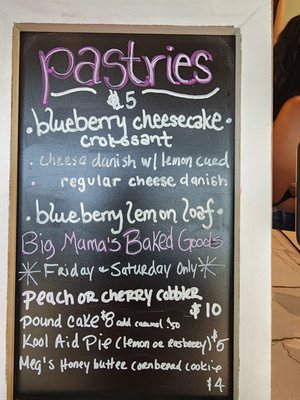 pastries
$5
· blueberry cheesecake ·
croissant
· cheese danish w/ lemon curd
· regular cheese danish
· blueberry lemon loaf ·
Big Mama's Baked Goods
Friday & Saturday Only
peach or cherry cobbler
$10
pound cake $8 add caramel $.50
Kool Aid Pie (lemon or rasbeery) $5
Meg's Honey butter cornbread cookie
$4